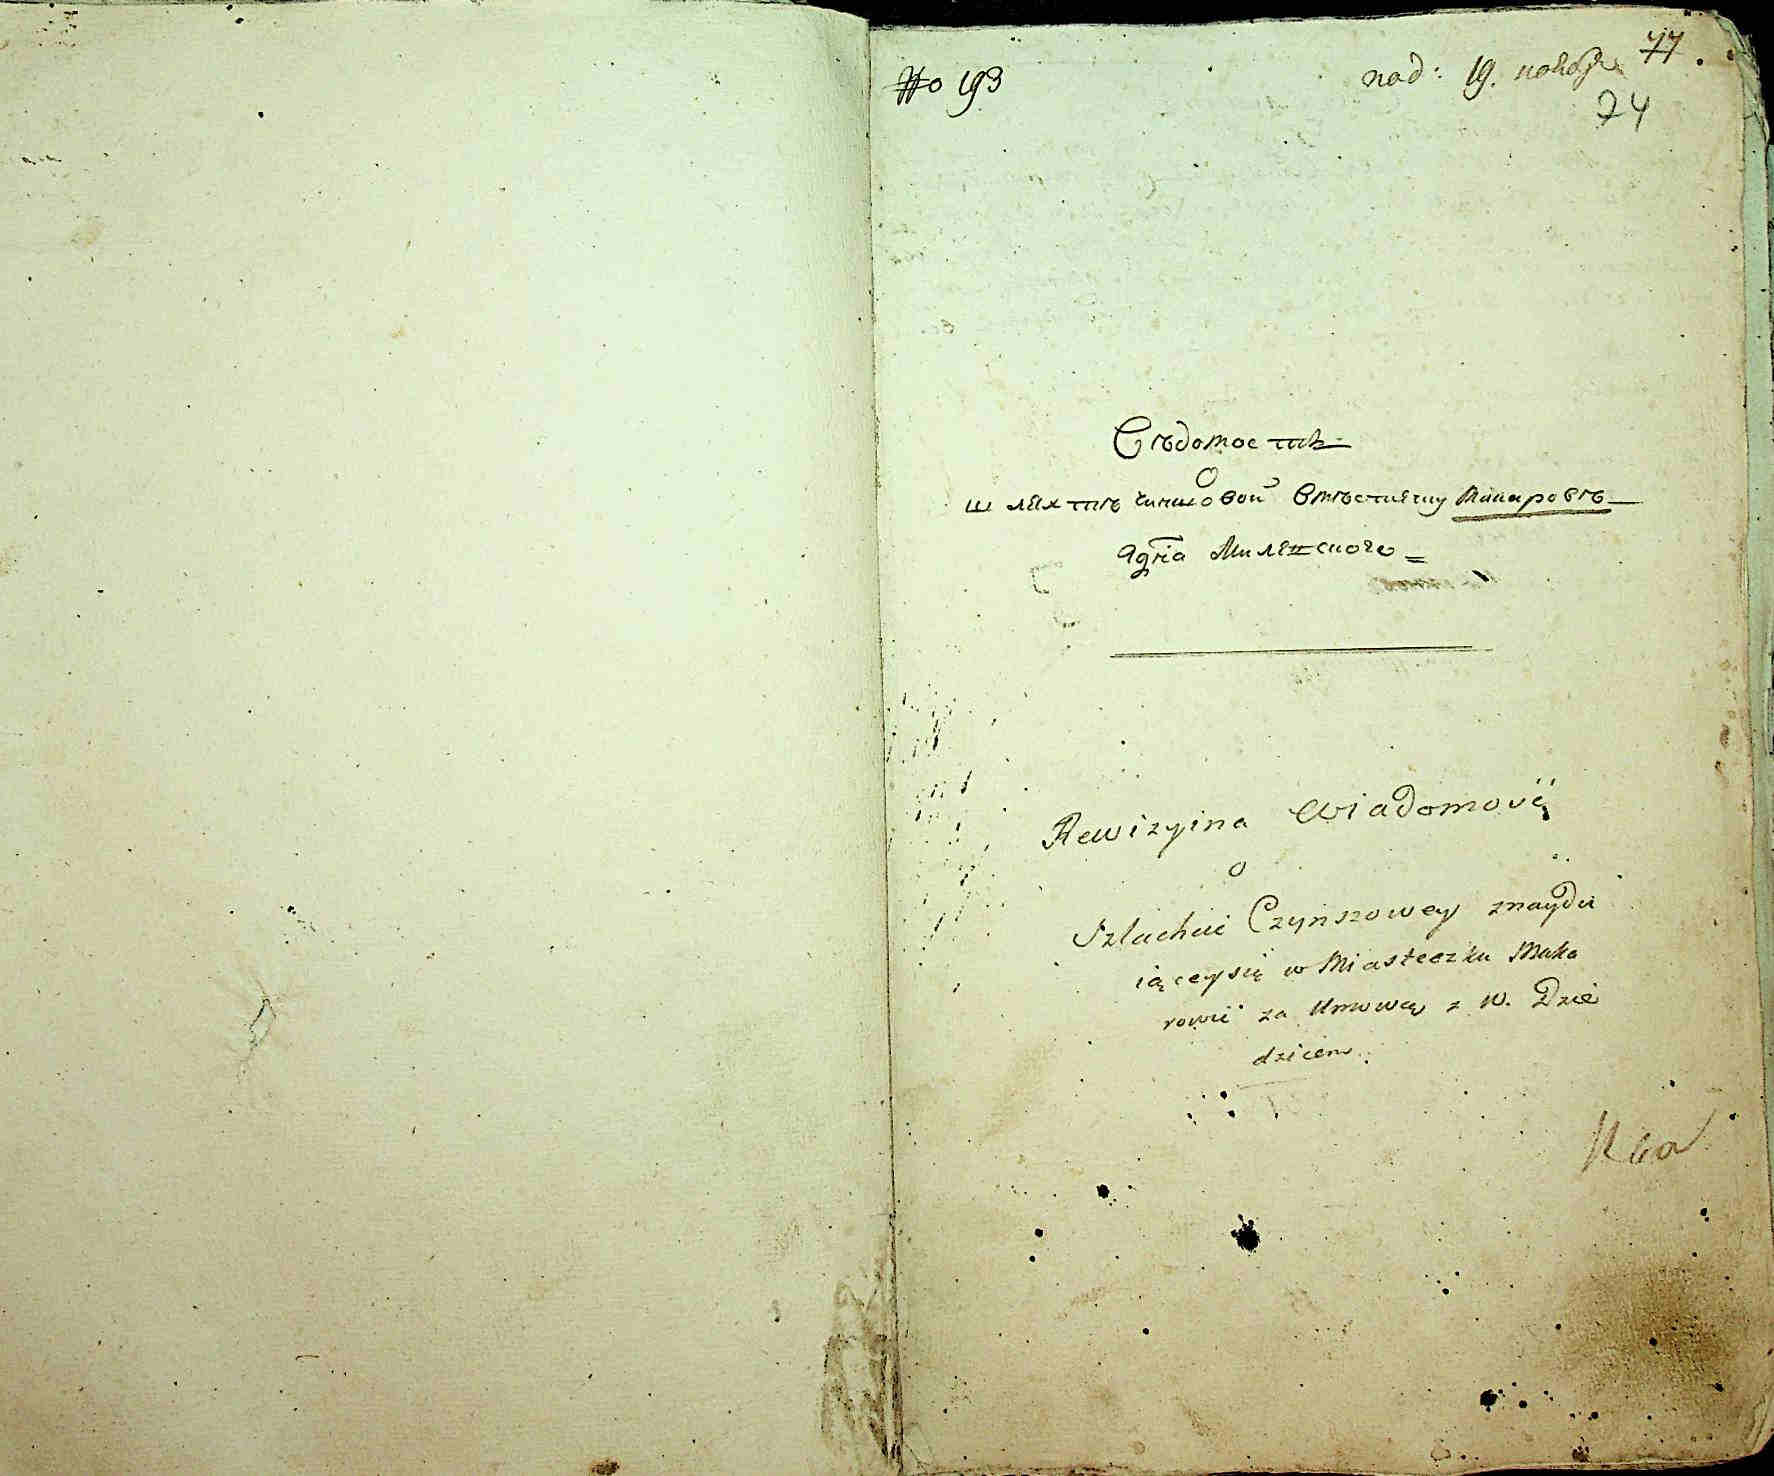 No 193
под: 19. ноября 77.
74
Вѣдомость
О
шляхтѣ чиншовой вмѣстечку Макаровѣ
Rewizyina Wiadomość
o
Szlachcie Czynszowey znaydu
iąceysię w Miasteczku Maka
rowie za Umową z W. Dzie
dzicem.